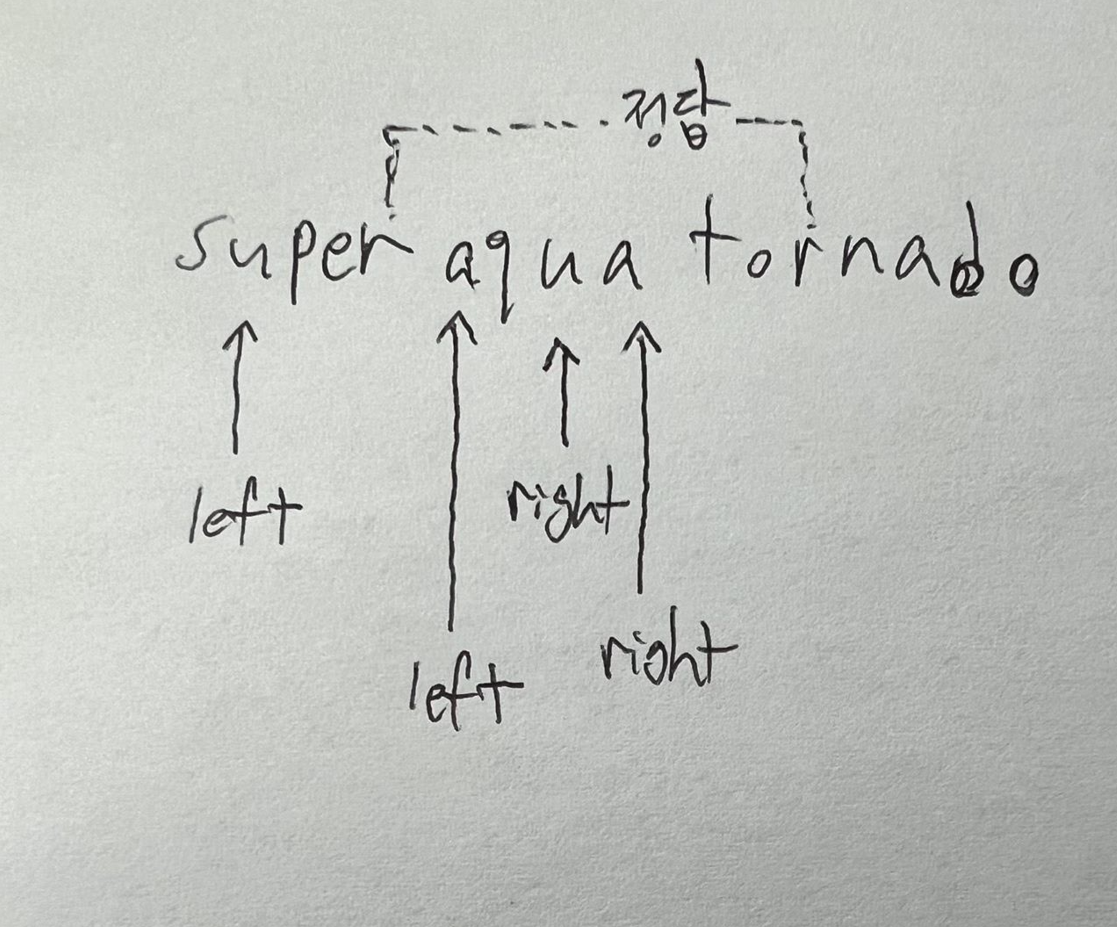 정답
super aqua tornado
left
right
left
right